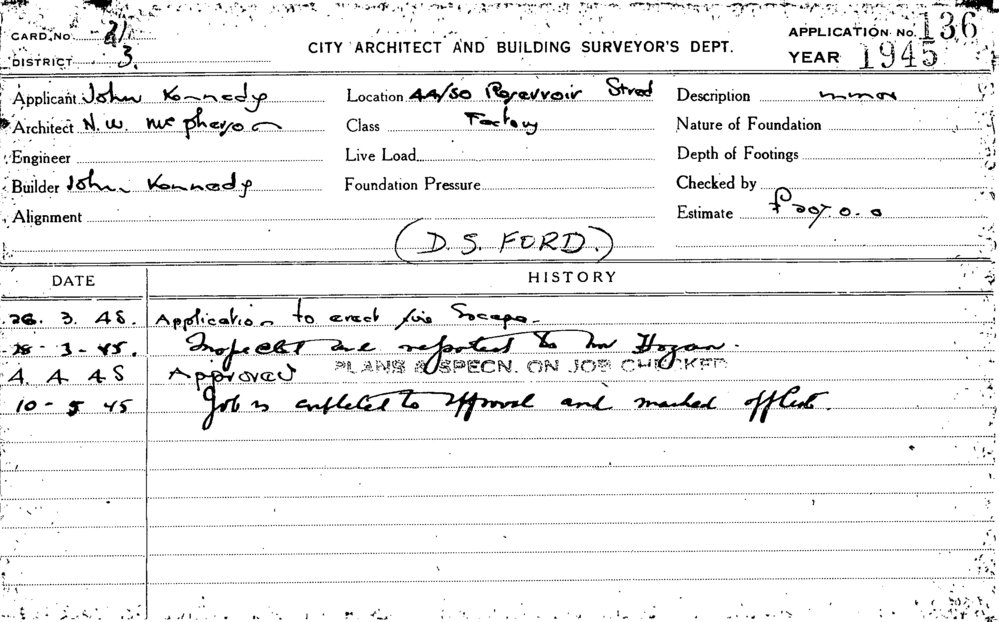 CARD NO 21
DISTRICT 3.
CITY ARCHITECT AND BUILDING SURVEYOR'S DEPT.
APPLICATION No. 136
YEAR 1945
Applicant John Kennedy
Location 44/50 Reservoir Street
Description minor
Architect N. W. McPherson
Class Factory
Nature of Foundation
Engineer
Live Load
Depth of Footings
Builder John Kennedy
Foundation Pressure
Checked by
Alignment
Estimate £207.0.0
(D. S. FORD.)
DATE HISTORY
26. 3. 45. Application to erect fire Escape.
28-3-45. Inspected and reported to Mr Hogan.
4. 4. 45 Approved PLANS & SPECN. ON JOB CHECKED
10-5 45 Job is completed to approval and marked off